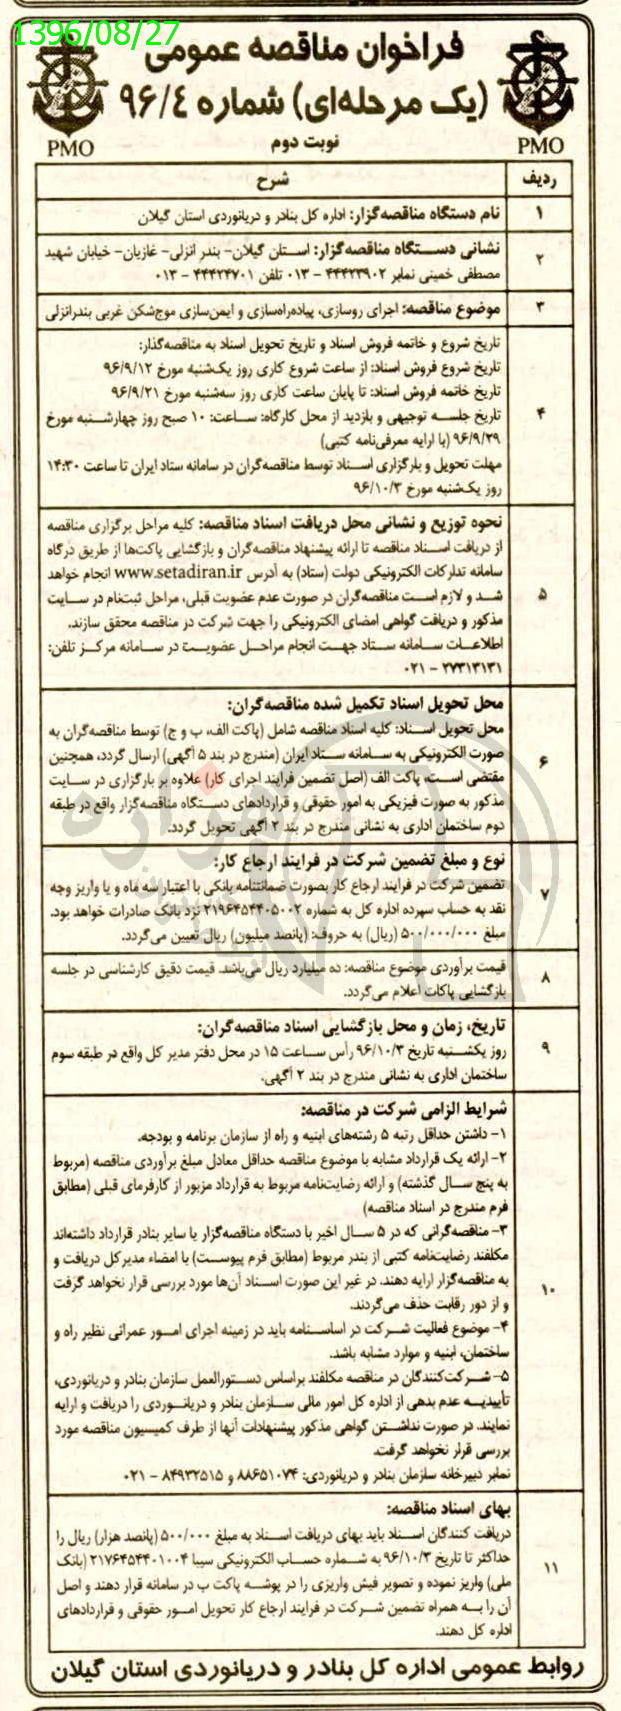 1396/08/27
فراخوان مناقصه عمومی
(یک مرحله‌ای) شماره ۹۶/۴
نوبت دوم
PMO
PMO
ردیف
شرح
۱
نام دستگاه مناقصه‌گزار: اداره کل بنادر و دریانوردی استان گیلان
۲
نشانی دستگاه مناقصه‌گزار: استان گیلان- بندر انزلی- غازیان- خیابان شهید
مصطفی خمینی نمابر ۴۴۴۲۳۹۰۲ - ۰۱۳ تلفن ۴۴۴۲۴۷۰۱ - ۰۱۳
۳
موضوع مناقصه: اجرای روسازی، پیاده‌راه‌سازی و ایمن‌سازی موج‌شکن غربی بندرانزلی
۴
تاریخ شروع و خاتمه فروش اسناد و تاریخ تحویل اسناد به مناقصه‌گذار:
تاریخ شروع فروش اسناد: از ساعت شروع کاری روز یک‌شنبه مورخ ۹۶/۹/۱۲
تاریخ خاتمه فروش اسناد: تا پایان ساعت کاری روز سه‌شنبه مورخ ۹۶/۹/۲۱
تاریخ جلسه توجیهی و بازدید از محل کارگاه: ساعت: ۱۰ صبح روز چهارشنبه مورخ
۹۶/۹/۲۹ (با ارایه معرفی‌نامه کتبی)
مهلت تحویل و بارگزاری اسناد توسط مناقصه‌گران در سامانه ستاد ایران تا ساعت ۱۴:۳۰
روز یک‌شنبه مورخ ۹۶/۱۰/۳
۵
نحوه توزیع و نشانی محل دریافت اسناد مناقصه: کلیه مراحل برگزاری مناقصه
از دریافت اسناد مناقصه تا ارائه پیشنهاد مناقصه‌گران و بازگشایی پاکت‌ها از طریق درگاه
سامانه تدارکات الکترونیکی دولت (ستاد) به آدرس www.setadiran.ir انجام خواهد
شد و لازم است مناقصه‌گران در صورت عدم عضویت قبلی، مراحل ثبت‌نام در سایت
مذکور و دریافت گواهی امضای الکترونیکی را جهت شرکت در مناقصه محقق سازند.
اطلاعات سامانه ستاد جهت انجام مراحل عضویت در سامانه مرکز تلفن:
۲۷۳۱۳۱۳۱ - ۰۲۱
۶
محل تحویل اسناد تکمیل شده مناقصه‌گران:
محل تحویل اسناد: کلیه اسناد مناقصه شامل (پاکت الف، ب و ج) توسط مناقصه‌گران به
صورت الکترونیکی به سامانه ستاد ایران (مندرج در بند ۵ آگهی) ارسال گردد، همچنین
مقتضی است، پاکت الف (اصل تضمین فرایند اجرای کار) علاوه بر بارگزاری در سایت
مذکور به صورت فیزیکی به امور حقوقی و قراردادهای دستگاه مناقصه‌گزار واقع در طبقه
دوم ساختمان اداری به نشانی مندرج در بند ۲ آگهی تحویل گردد.
۷
نوع و مبلغ تضمین شرکت در فرایند ارجاع کار:
تضمین شرکت در فرایند ارجاع کار بصورت ضمانتنامه بانکی با اعتبار سه ماه و یا واریز وجه
نقد به حساب سپرده اداره کل به شماره ۲۱۹۶۴۵۴۴۰۵۰۰۲ نزد بانک صادرات خواهد بود.
مبلغ ۵۰۰/۰۰۰/۰۰۰ (ریال) به حروف: (پانصد میلیون) ریال تعیین می‌گردد.
۸
قیمت برآوردی موضوع مناقصه: ده میلیارد ریال می‌باشد. قیمت دقیق کارشناسی در جلسه
بازگشایی پاکات اعلام می‌گردد.
۹
تاریخ، زمان و محل بازگشایی اسناد مناقصه‌گران:
روز یکشنبه تاریخ ۹۶/۱۰/۳ رأس ساعت ۱۵ در محل دفتر مدیر کل واقع در طبقه سوم
ساختمان اداری به نشانی مندرج در بند ۲ آگهی.
۱۰
شرایط الزامی شرکت در مناقصه:
۱- داشتن حداقل رتبه ۵ رشته‌های ابنیه و راه از سازمان برنامه و بودجه.
۲- ارائه یک قرارداد مشابه با موضوع مناقصه حداقل معادل مبلغ برآوردی مناقصه (مربوط
به پنج سال گذشته) و ارائه رضایت‌نامه مربوط به قرارداد مزبور از کارفرمای قبلی (مطابق
فرم مندرج در اسناد مناقصه)
۳- مناقصه‌گرانی که در ۵ سال اخیر با دستگاه مناقصه‌گزار یا سایر بنادر قرارداد داشته‌اند
مکلفند رضایت‌نامه کتبی از بندر مربوط (مطابق فرم پیوست) با امضاء مدیرکل دریافت و
به مناقصه‌گزار ارایه دهند، در غیر این صورت اسناد آن‌ها مورد بررسی قرار نخواهد گرفت
و از دور رقابت حذف می‌گردند.
۴- موضوع فعالیت شرکت در اساسنامه باید در زمینه اجرای امور عمرانی نظیر راه و
ساختمان، ابنیه و موارد مشابه باشد.
۵- شرکت‌کنندگان در مناقصه مکلفند براساس دستورالعمل سازمان بنادر و دریانوردی،
تأییدیه عدم بدهی از اداره کل امور مالی سازمان بنادر و دریانوردی را دریافت و ارایه
نمایند. در صورت نداشتن گواهی مذکور پیشنهادات آنها از طرف کمیسیون مناقصه مورد
بررسی قرار نخواهد گرفت.
نمابر دبیرخانه سازمان بنادر و دریانوردی: ۸۸۶۵۱۰۷۴ و ۸۴۹۳۲۵۱۵ - ۰۲۱
۱۱
بهای اسناد مناقصه:
دریافت کنندگان اسناد باید بهای دریافت اسناد به مبلغ ۵۰۰/۰۰۰ (پانصد هزار) ریال را
حداکثر تا تاریخ ۹۶/۱۰/۳ به شماره حساب الکترونیکی سیبا ۲۱۷۶۴۵۴۴۰۱۰۰۴ (بانک
ملی) واریز نموده و تصویر فیش واریزی را در پوشه پاکت ب در سامانه قرار دهند و اصل
آن را به همراه تضمین شرکت در فرایند ارجاع کار تحویل امور حقوقی و قراردادهای
اداره کل دهند.
روابط عمومی اداره کل بنادر و دریانوردی استان گیلان
هزاره